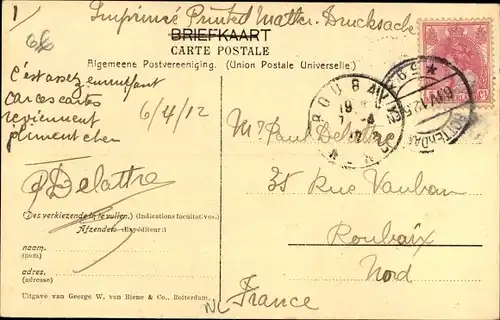 1
Imprimé Printed Matter. Drucksache
66
BRIEFKAART
CARTE POSTALE
Algemeene Postvereeniging. (Union Postale Universelle.)
C'est assez ennuyant
car ces cartes
reviennent
cher
6/4/12
P Delattre
ROUBAIX
Mr Paul Delattre
35 Rue Vauban
Roubaix
Nord
France
Des verkiezende in te vullen. (Indications facultatives.)
Afzender: (Expéditeur:)
naam.
(nom)
adres.
(adresse)
Uitgave van George W. van Biene & Co., Rotterdam.
NL